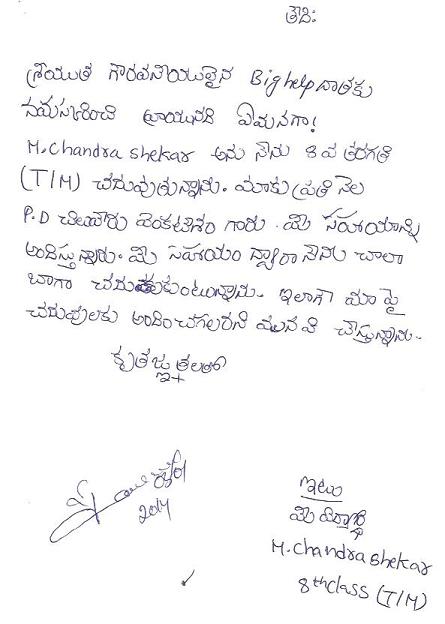 తేది:
శ్రీయుత గౌరవనీయులైన Big help దాతకు
నమస్కరించి వ్రాయునది ఏమనగా!
M. Chandra shekar అను నేను 8 వ తరగతి
(T/M) చదువుతున్నాను. మాకు ప్రతి నెల
P.D చిలవూరు వెంకటేశం గారు. మీ సహాయాన్ని
అందిస్తున్నారు. మీ సహాయం ద్వారా నేను చాలా
బాగా చదువుకుంటున్నాను. ఇలాగే మా పై
చదువులకు అందించగలరని మనవి చేస్తున్నాను.
కృతజ్ఞతలతో
2014
ఇట్లు
మీ విద్యార్థి
M. Chandra shekar
8th class (T/M)